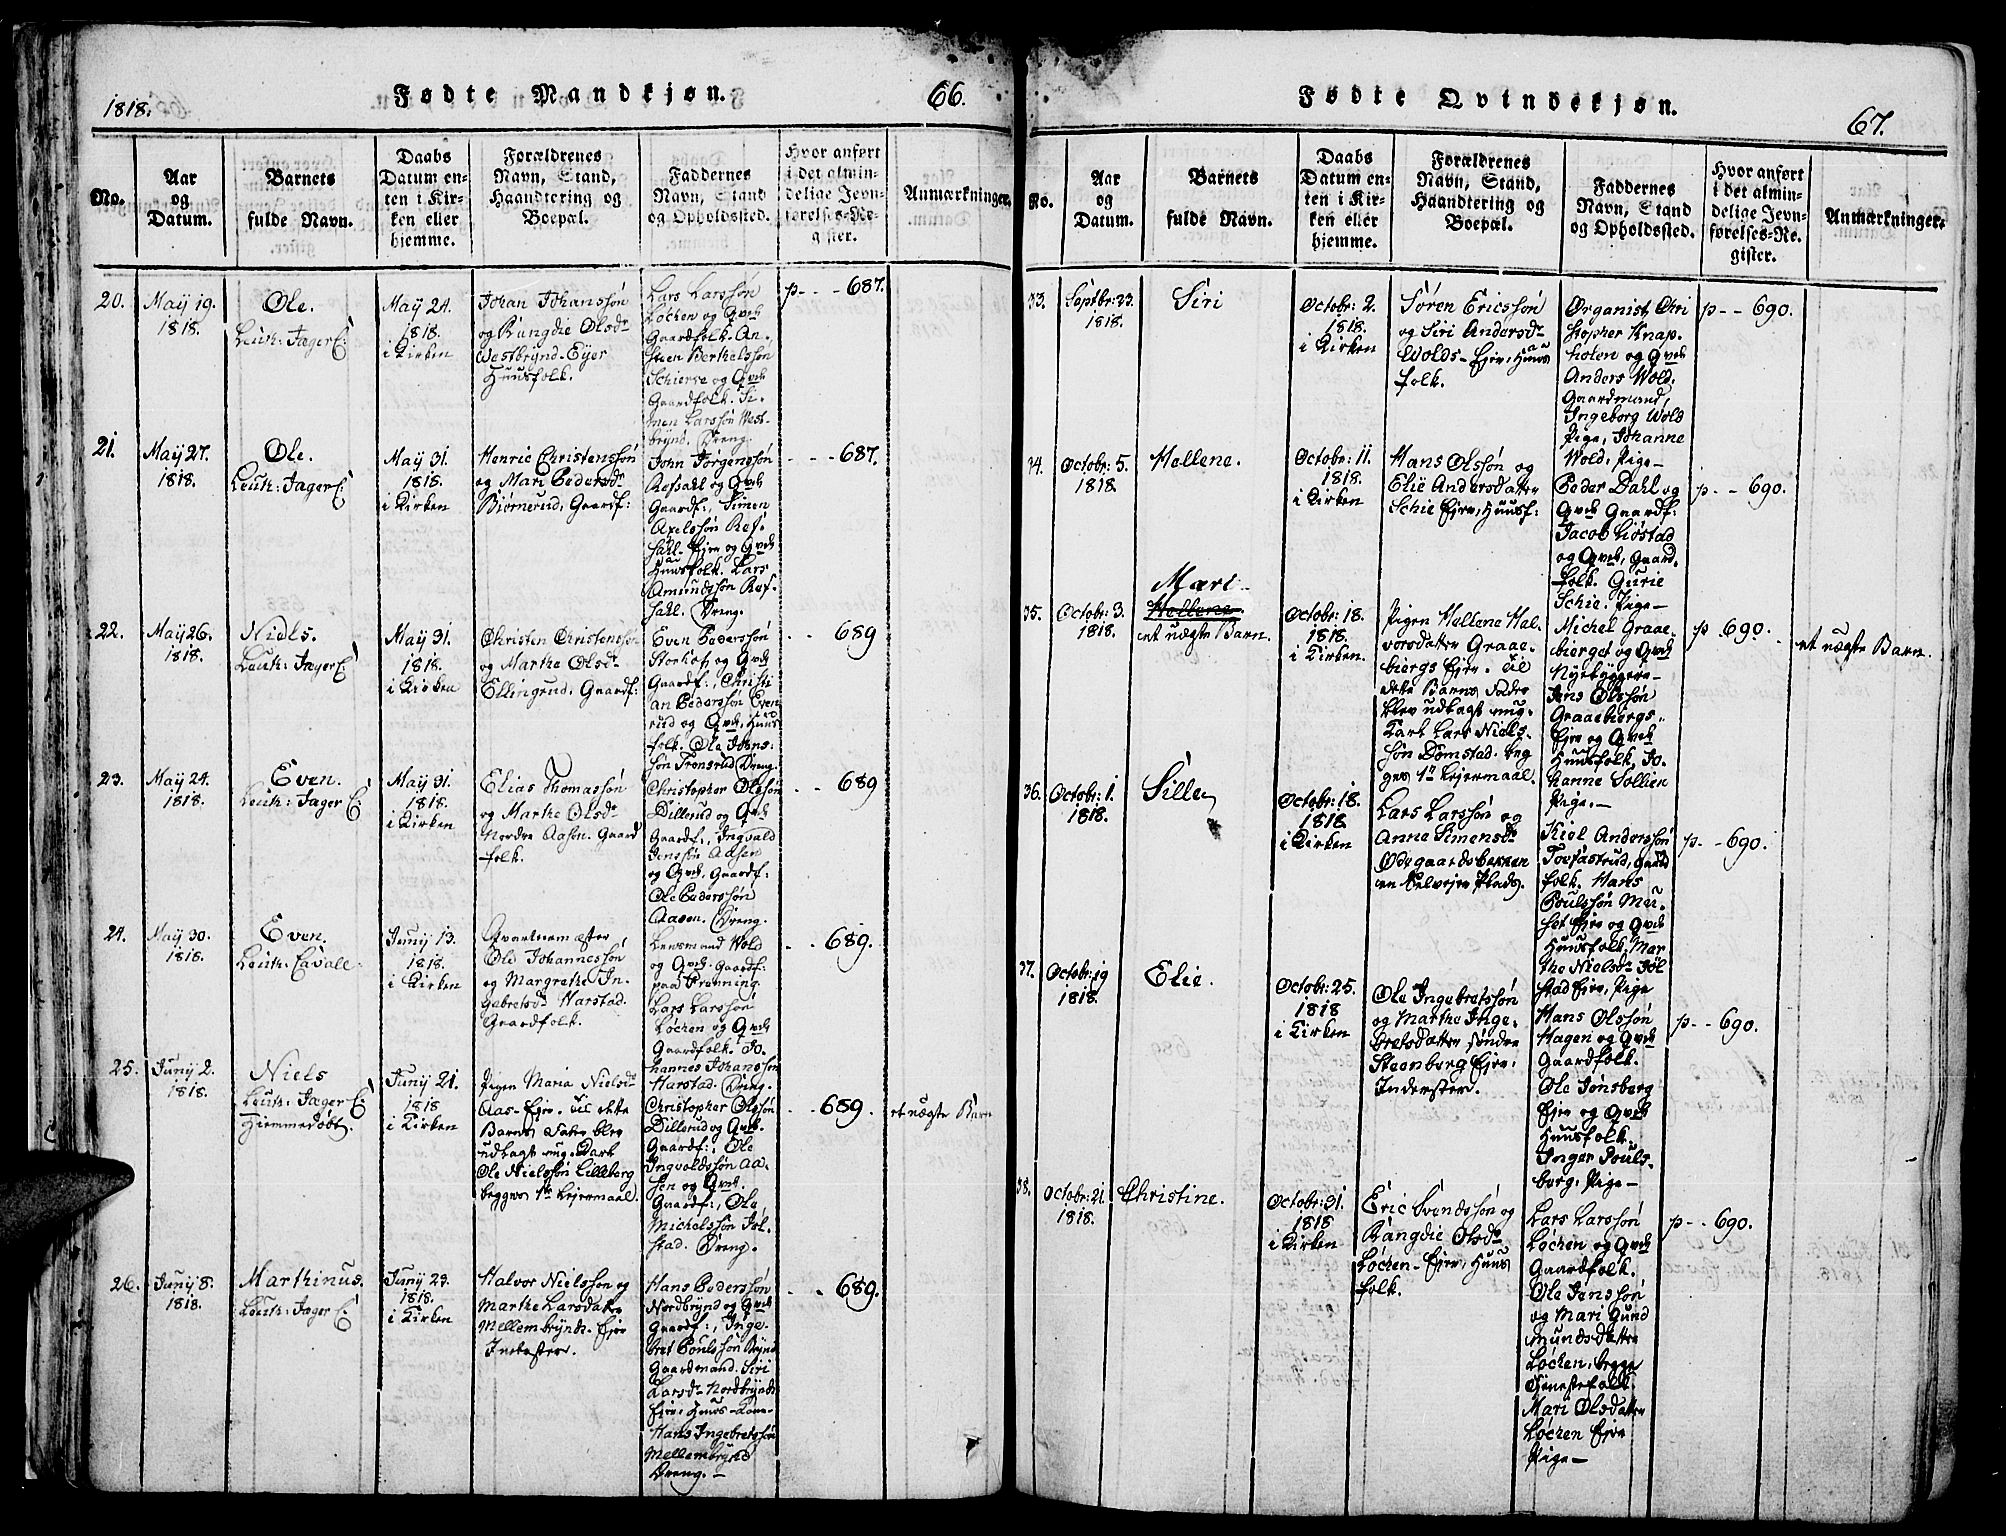 1818.
Fødte Mandkjøn.
66.
No.
Aar
og
Datum.
Barnets
fulde Navn.
Daabs
Datum en-
ten i Kir-
ken eller
hjemme.
Forældrenes
Navn, Stand,
Haandtering og
Boepæl.
Faddernes
Navn, Stand
og Opholdssted.
Hvor anført
i det almin-
delige Jevn-
førelses-Re-
gister.
Anmærkninger.
20.
Maÿ 19.
1818.
Ole.
Leut: Jæger C:
Maÿ 24.
1818.
i Kirken
Johan Johanssøn
og Rangdie Olsdr
Westbrÿnd-Eyer
Huusfolk.
Lars Larssøn
Løchen og Qvde
Gaardfolk. An-
sten Berthelssøn
Schierse og Qvde
Gaardfolk. Si-
men Larssøn West-
brÿnd. Dreng.
p - - - 687.
21.
Maÿ 27.
1818.
Ole.
Leut: Jager C
Maÿ 31.
1818.
i Kirken
Henric Christenssøn
og Mari Pedersdr
Biørnerud, Gaardf:
John Jørgenssøn
Refsahl og Qvde
Gaardf:, Simen
Axelssøn Ref-
sahl-Ejer og Qvde
Huusfolk. Lars
Amundssøn Ref-
sahl. Dreng.
- - - 687.
22.
Maÿ 26.
1818.
Niels.
Leut: Jæger C
Maÿ 31.
1818.
i Kirken
Christen Christenssøn
og Marthe Olsdr
Ellingrud, Gaardf:
Even Pederssøn
Storhof, og Qvde
Gaardf:, Christi
an Pederssøn Even
rud og Qvde, Huus
folk. Ole Johns-
søn Tronsrud Dreng.
- - 689
23.
Maÿ 24.
1818.
Even.
Leut: Jager C:
Maÿ 31.
1818.
i Kirken
Elias Thomassøn
og Marthe Olsdr
Nordre Aasen. Gaard
-folk.
Christopher Olssøn
Dillerud og Qvde
Gaardf:, Ingvald
Jenssøn Aasen
og Qvde, Gaardf:
Ole Pederssøn
Aasen. Dreng.
- - 689
24.
Maÿ 30.
1818.
Even.
Leut: Cavall:
Junÿ 13.
1818.
i Kirken
Qvarteermester
Ole Johannessøn
og Margrethe In-
gebretsdr Harstad.
Gaardfolk.
Lensmand Wold
og Qvde. Gaardf:
paa Brenning.
Lars Larssøn
Løchen og Qvde
Gaardfolk. Jo-
hannes Johanssøn
Harstad. Dreng.
- - 689.
25.
Junÿ 2.
1818.
Niels
Leut: Jæger C:
Hiemmedøbt.
Junÿ 21.
1818
i Kirken
Pigen Maria Nielsdr
Aas-Ejer. Til dette
Barns Fader blev
udlagt ung-Karl
Ole Nielssøn Lilleberg
begges 1te Lejermaal.
Christopher Olssøn
Dillerud og Qvde.
Gaardf:, Ole
Ingvoldssøn Aa-
sen og Qvde.
Gaardf:, Ole
Michelssøn Jøl-
stad. Dreng.
- - 689.
et uægte Barn
26.
Junÿ 8.
1818.
Marthinus.
Leut: Jæger C:
Junÿ 29.
1818.
i Kirken
Halvor Nielssøn og
Marthe Larsdatter
Mellembrÿnds-Ejer
Inderster.
Hans Pederssøn
Nordbrÿnd og Qvde
Gaardf:, Inge-
bret Poulssøn Brÿnd
Gaardmand. Siri
Larsdr Nordbrÿnds
Ejer, Huus-Kone-
Hans Ingebretssøn
Mellembrÿnd
Dreng. -
- - 689.
Fødte Qvindekjøn.
67.
No.
Aar
og
Datum.
Barnets
fulde Navn.
Daabs
Datum en-
ten i Kir-
ken eller
hjemme.
Forældrenes
Navn, Stand,
Haandtering og
Boepæl.
Faddernes
Navn, Stand
og Opholdssted.
Hvor anført
i det almin-
delige Jevn-
førelses-Re-
gister.
Anmærkninger.
33.
Septbr: 23.
1818.
Siri
Octobr: 2.
1818.
i Kirken
Søren Ericssøn
og Siri Andersdr
Wolds-Ejer, Huus
folk.
Organist Chri
stopher Knap-
holen og Qvde
Anders Wold.
Gaardmand,
Ingeborg Wold
Pige, Johanne
Wold. Pige-
p - - 690.
34.
Octobr: 5.
1818.
Hellene.
Octobr: 11.
1818.
i Kirken
Hans Olssøn og
Elie Andersdatter
Schie Ejer, Huusf:
Peder Dahl og
Qvde Gaardf:
Jacob Liøstad
og Qvde, Gaard
folk. Gurie
Schie. Pige-
p - - 690.
35.
Octobr: 3.
1818.
Mari
Hellene.
et uægte Barn.
Octobr: 18.
1818.
i Kirken.
Pigen Hellene Hal-
vorsdatter Graae-
bergs Ejer. Til
dette Barns Fader
blev udlagt ung-
Karl Lars Niels-
søn Domstad. beg
ges 1te Lejermaal.
Michel Graae-
berget og Qvde
Nÿebÿggere-
Jens Olssøn
Graaebergs-
Ejer og Qvde
Huusfolk, Jo-
hanne Sollien
Pige.-
p 690.
et uægte Barn.
36.
Octobr: 1.
1818.
Sille
Octobr: 18.
1818
i Kirken
Lars Larssøn og
Anne Simensdr
Ødegaardsbakken
en Selvejer Plads.
Kiel Anderssøn
Torfastrud, Gaard
folk. Hans
Poulssøn Mær-
set Ejer og Qvde
Huusfolk, Mar
the Nielsdr Jøl
stad Ejer, Pige
p - - 690.
37.
Octobr: 19
1818.
Elie.
Octobr: 25.
1818
i Kirken
Ole Ingebretssøn
og Marthe Inge-
bretsdatter søndre
Steenberg Ejer,
Inderster.
Hans Olssøn
Hagen og Qvde
Gaardfolk.
Ole Jønsberg
Ejer og Qvde
Huusfolk.
Inger Pouls-
berg, Pige-
p - - 690.
38.
Octobr: 21.
1818.
Christine.
Octobr: 31.
1818
i Kirken
Eric Svendssøn og
Rangdie Olsdr
Løchen-Ejer, Huus
folk.
Lars Larssøn
Løchen og Qvde
Gaardfolk.
Ole Jenssøn
og Mari Gund
mundsdatter
Løchen, begge
Tjenestefolk.
Mari Olsdatter
Løchen Ejer
Pige-
p - - 690.